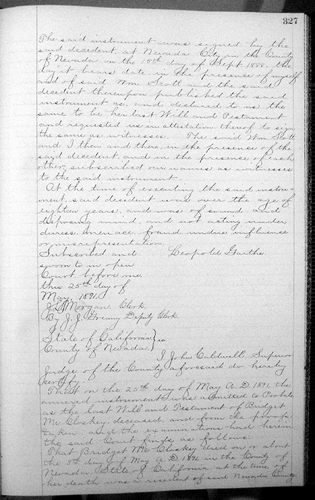 327
The said instrument was signed by the
said decedent, at Nevada City in the County
of Nevada on the 15th day of Sept. 1888, the
day it bears date in the presence of myself
and of said Wm. Scott and the said
decedent thereupon published the said
instrument as, and declared to us the
same to be her last Will and Testament
and requested us in attestation thereof to sign
the same as witnesses. The said Wm. Scott
and I then and there in the presence of the
said decedent and in the presence of each
other subscribed our names as witnesses
to the said instrument
At the time of executing the said instru-
ment, said decedent was over the age of
eighteen years, and was of sound and
disposing mind, and not acting under
duress menace, fraud undue influence
or misrepresentation
Subscribed and Leopold Garthe
sworn to in open
Court before me,
this 25th day of
May 1891.
Morgan Clerk
By J. J. Greany Deputy Clerk
State of California
County of Nevada } ss
I John Caldwell Superior
Judge of the County aforesaid do hereby
certify
That on the 25th day of May A. D. 1891 the
annexed instrument was admitted to Probate
as the last Will and Testament of Bridget
Mc Closkey deceased and from the proofs
taken and the examination had therein
the said Court finds as follows:
That Bridget Mc Closkey died on or about
the 8th day of May A. D. 1891 in the County of
Nevada State of California, at the time of
her death was a resident of said Nevada County